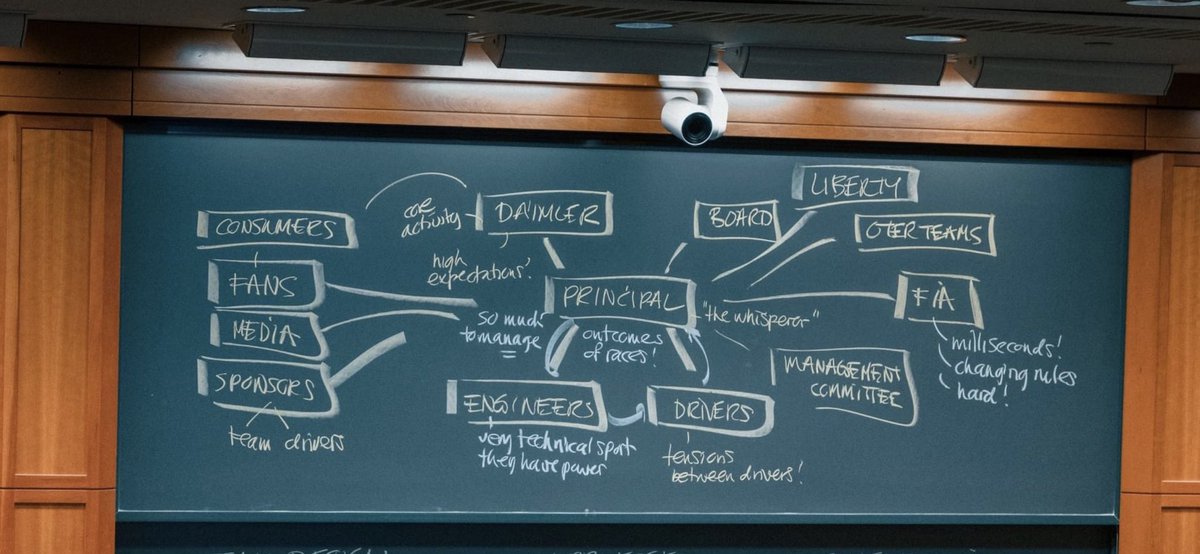 LIBERTY
CONSUMERS
core
activity
DAIMLER
BOARD
OTER TEAMS
high
expectations!
FANS
PRINCIPAL
FIA
"the whisperer"
MEDIA
so much
to manage
outcomes
of races!
milliseconds!
changing rules
hard!
SPONSORS
MANAGEMENT
COMMITTEE
ENGINEERS
DRIVERS
team drivers
very technical sport
they have power
tensions
between drivers!